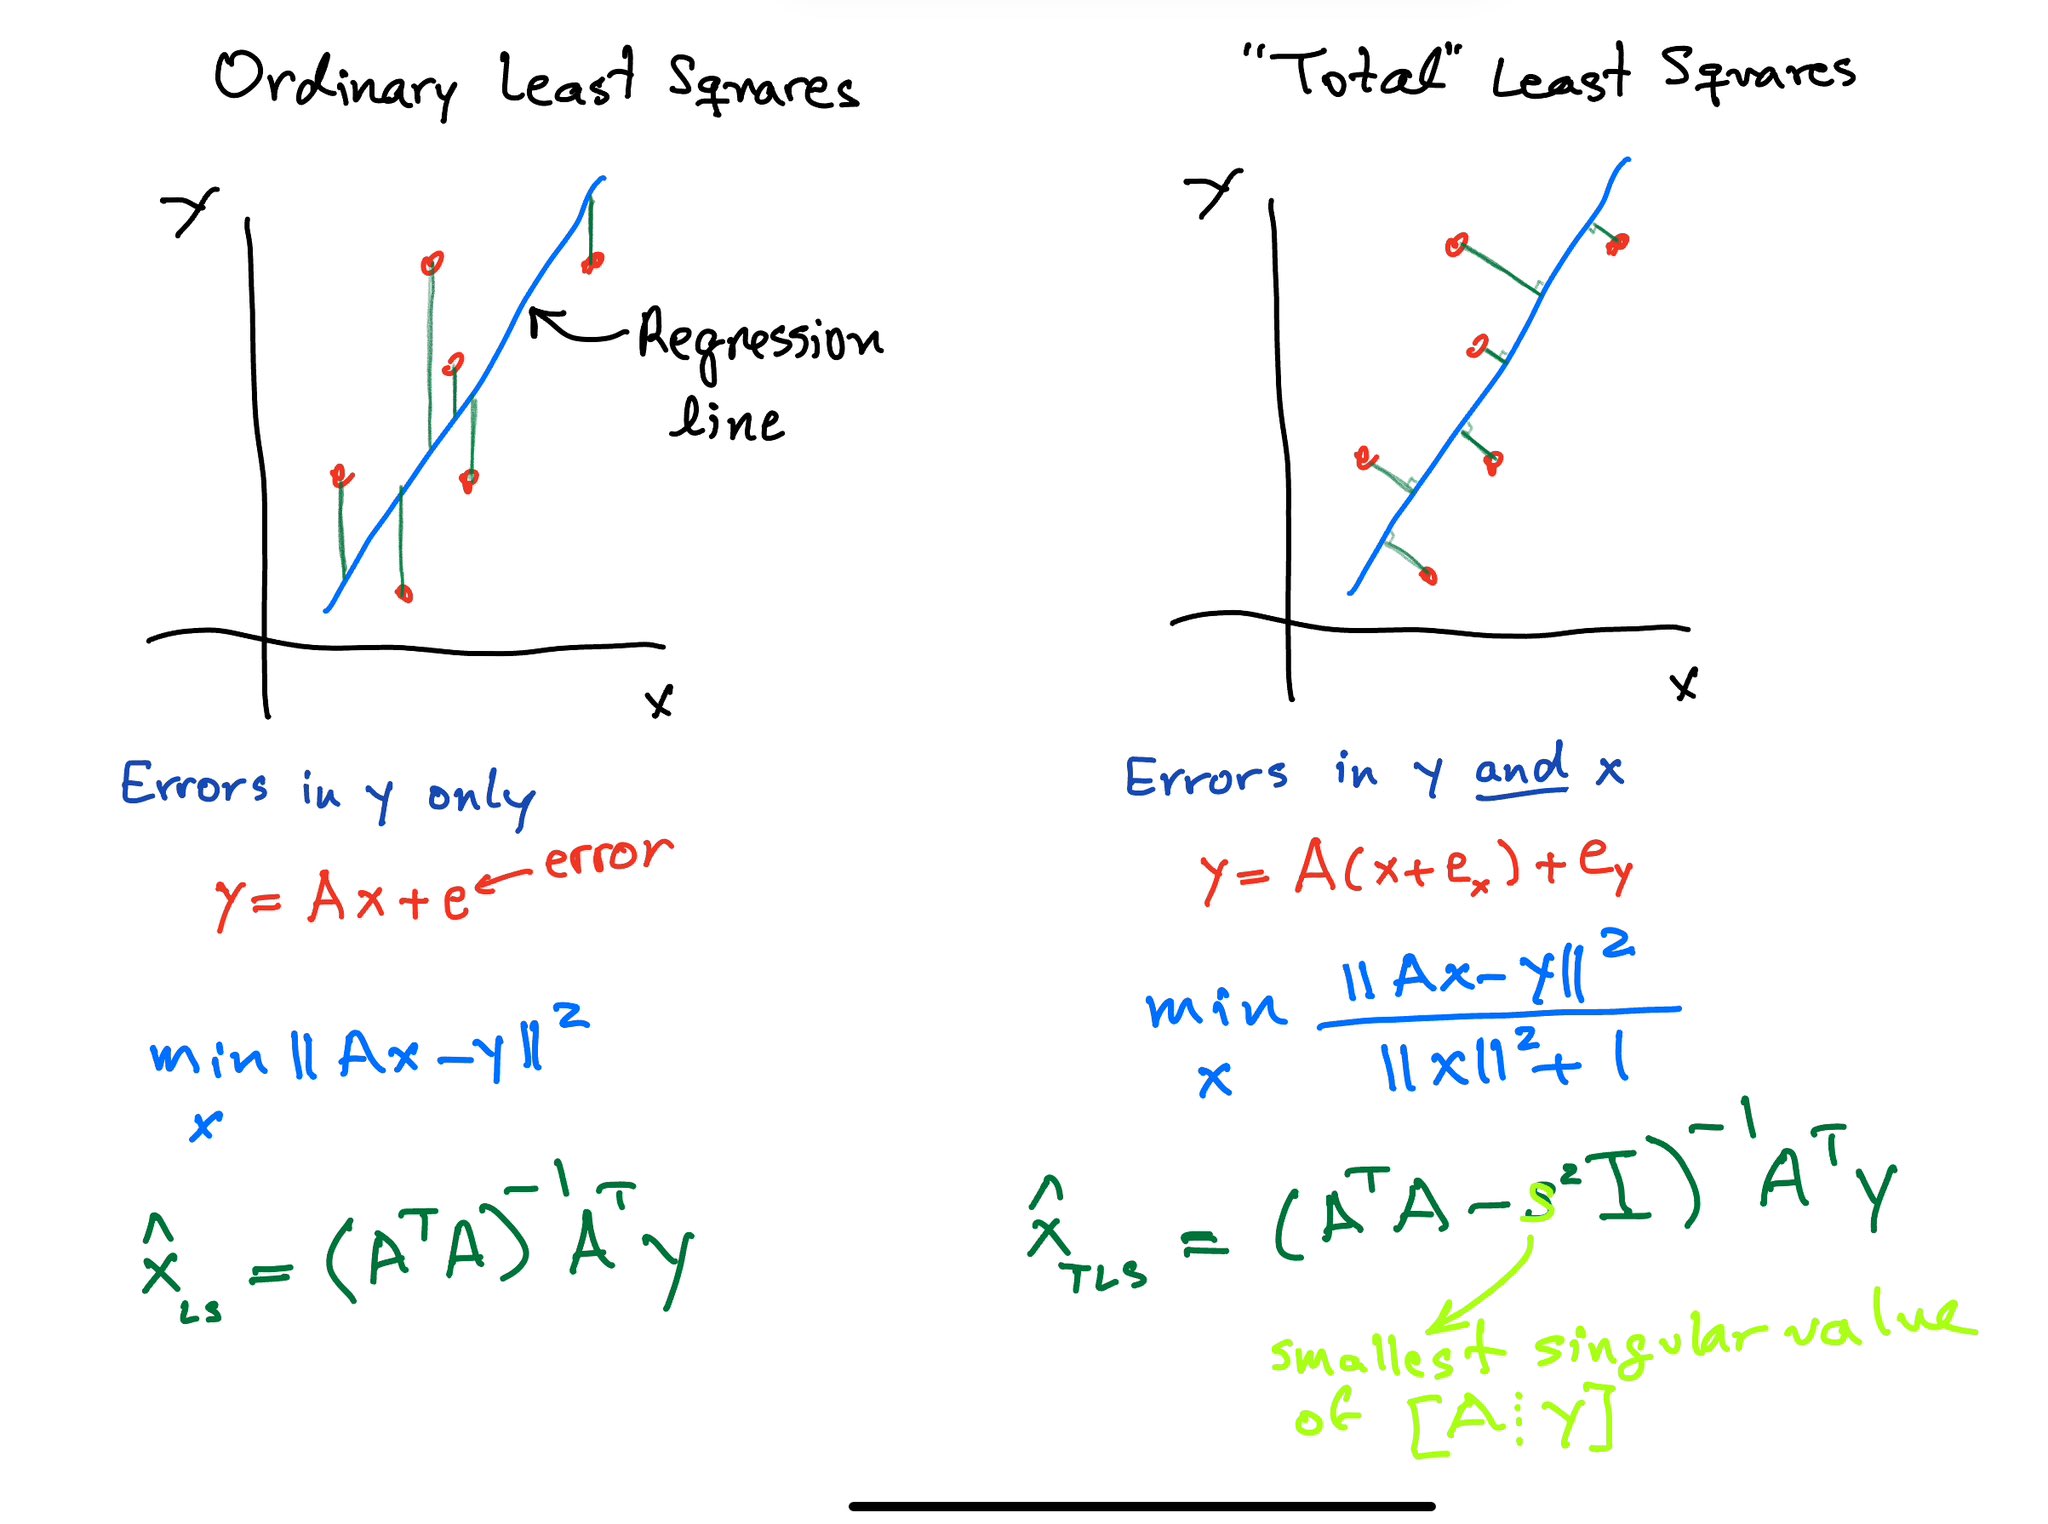 Ordinary Least Squares
Y
Regression
line
x
Errors in y only
y = Ax + e ← error
min ‖Ax − y‖²
x
x̂_LS = (AᵀA)⁻¹Aᵀy
"Total" Least Squares
Y
x
Errors in y and x
y = A(x + eₓ) + e_y
min ‖Ax − y‖²
x ‖x‖² + 1
x̂_TLS = (AᵀA − s²I)⁻¹Aᵀy
smallest singular value
of [A⋮y]